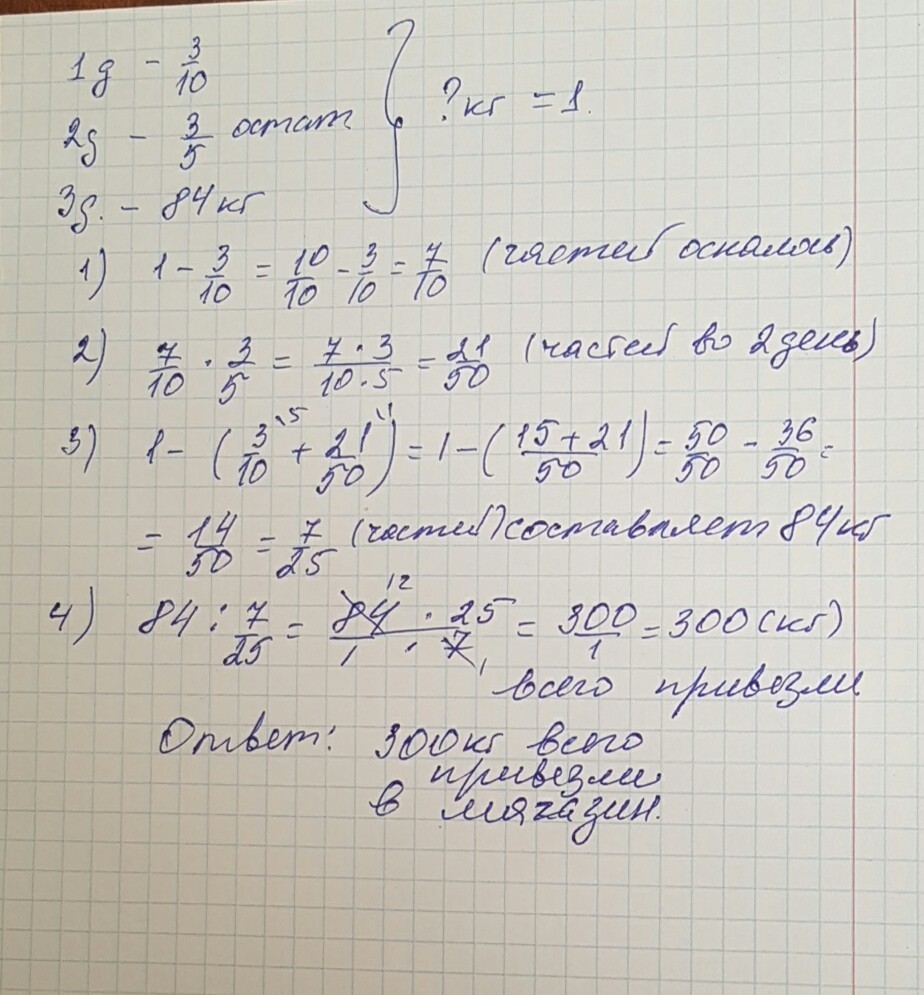 1д - 3/10
2д - 3/5 остат } ?кг = 1.
3д. - 84кг
1) 1 - 3/10 = 10/10 - 3/10 = 7/10 (частей осталось)
2) 7/10 · 3/5 = 7·3/10·5 = 21/50 (частей во 2 день)
3) 1 - (3/10 \5 + 21/50 \1) = 1 - (15+21/50) = 50/50 - 36/50 =
= 14/50 = 7/25 (частей) составляет 84кг
4) 84 : 7/25 = 84 12 · 25/1 · 7 1 = 300/1 = 300 (кг)
всего привезли
Ответ: 300кг всего
привезли
в магазин.